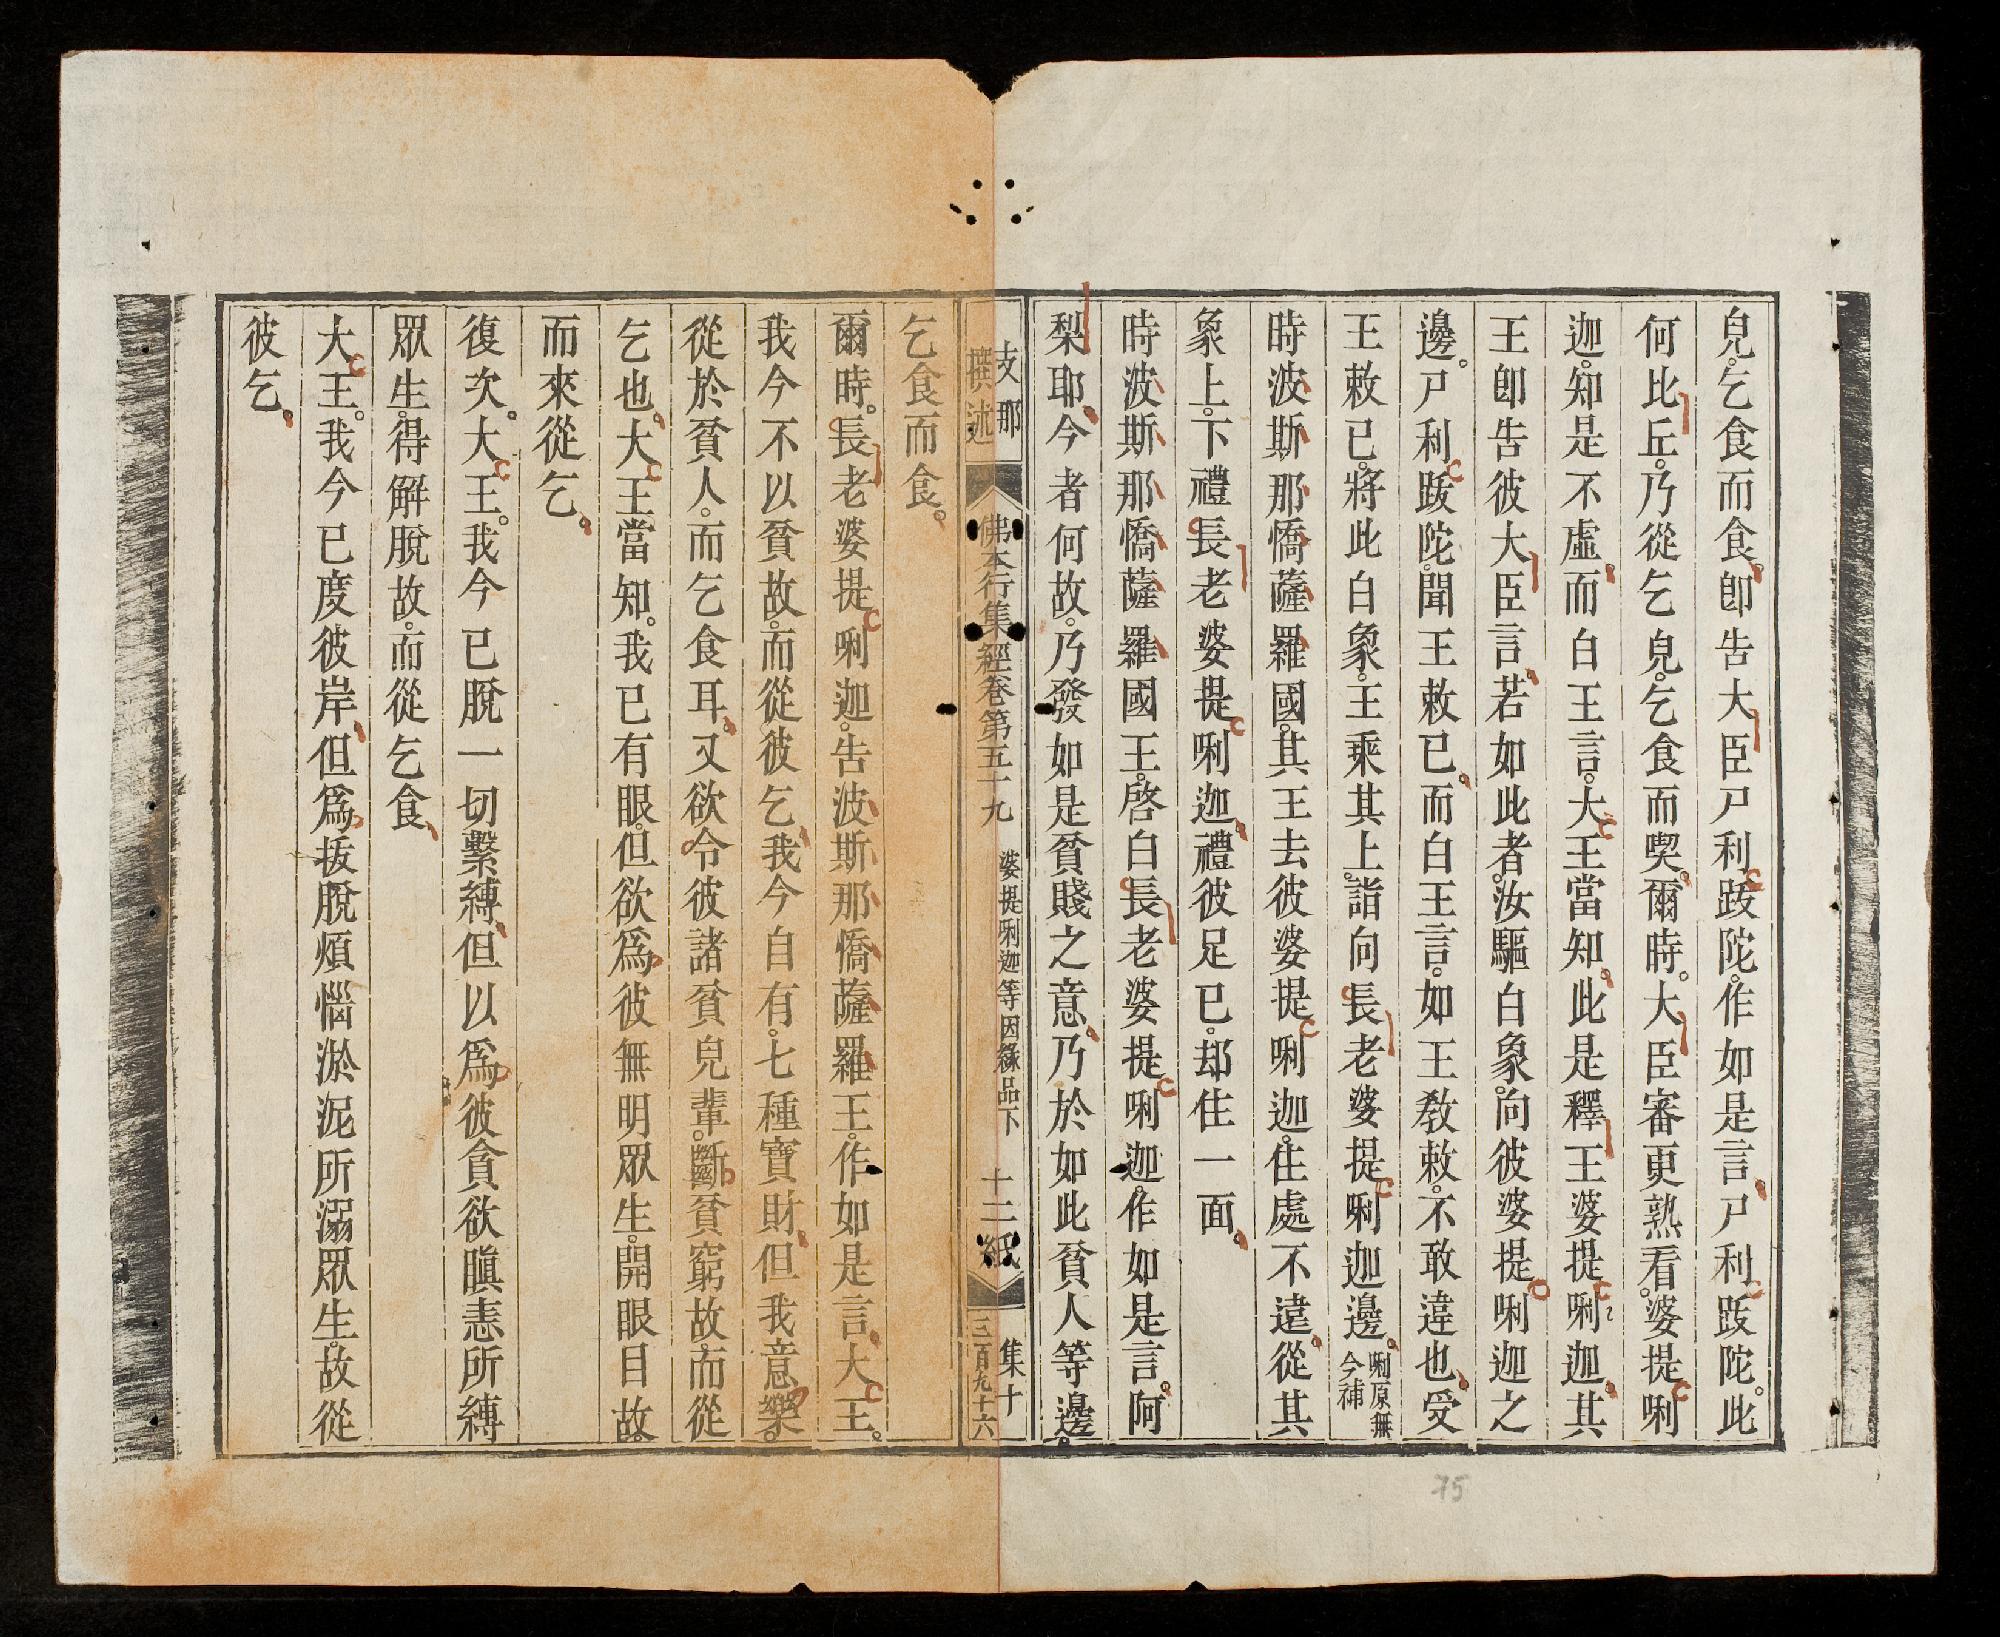 兒。乞食而食。卽告大臣尸利跋陀。作如是言。尸利跋陀。此
何比丘。乃從乞兒。乞食而喫。爾時。大臣審更熟看。婆提唎
迦。知是不虛。而白王言。大王當知。此是釋王婆提唎迦。其
王卽告彼大臣言。若如此者。汝驅白象。向彼婆提唎迦之
邊。尸利跋陀。聞王敕已。而白王言。如王敎敕。不敢違也。受
王敕已。將此白象。王乘其上。詣向長老婆提唎迦邊。唎原無今補
時波斯那憍薩羅國。其王去彼婆提唎迦。住處不遠。從其
象上。下禮長老婆提唎迦。禮彼足已。却住一面。
時波斯那憍薩羅國王。啓白長老婆提唎迦。作如是言。阿
梨耶。今者何故。乃發如是貧賤之意。乃於如此貧人等邊。
支那撰述 佛本行集經卷第五十九 婆提唎迦等因緣品下 十二紙 集十 三百九十六
乞食而食。
爾時。長老婆提唎迦。告波斯那憍薩羅王。作如是言。大王。
我今不以貧故。而從彼乞。我今自有。七種寶財。但我意樂。
從於貧人。而乞食耳。又欲令彼諸貧兒輩。斷貧窮故。而從
乞也。大王當知。我已有眼。但欲爲彼無明眾生。開眼目故。
而來從乞。
復次。大王。我今已脫一切繫縛。但以爲彼貪欲瞋恚所縛
眾生。得解脫故。而從乞食。
大王。我今已度彼岸。但爲拔脫煩惱淤泥所溺眾生。故從
彼乞。
75